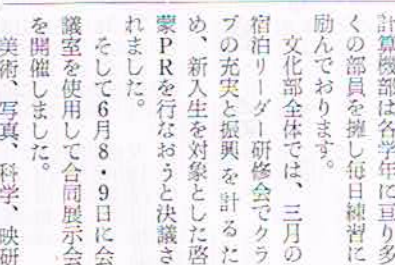 計算機部は各学年に亘り多
くの部員を擁し毎日練習に
励んでおります。
文化部全体では、三月の
宿泊リーダー研修会でクラ
ブの充実と振興を計るた
め、新入生を対象とした啓
蒙PRを行なおうと決議さ
れました。
そして6月8・9日に会
議室を使用して合同展示会
を開催しました。
美術、写真、科学、映研